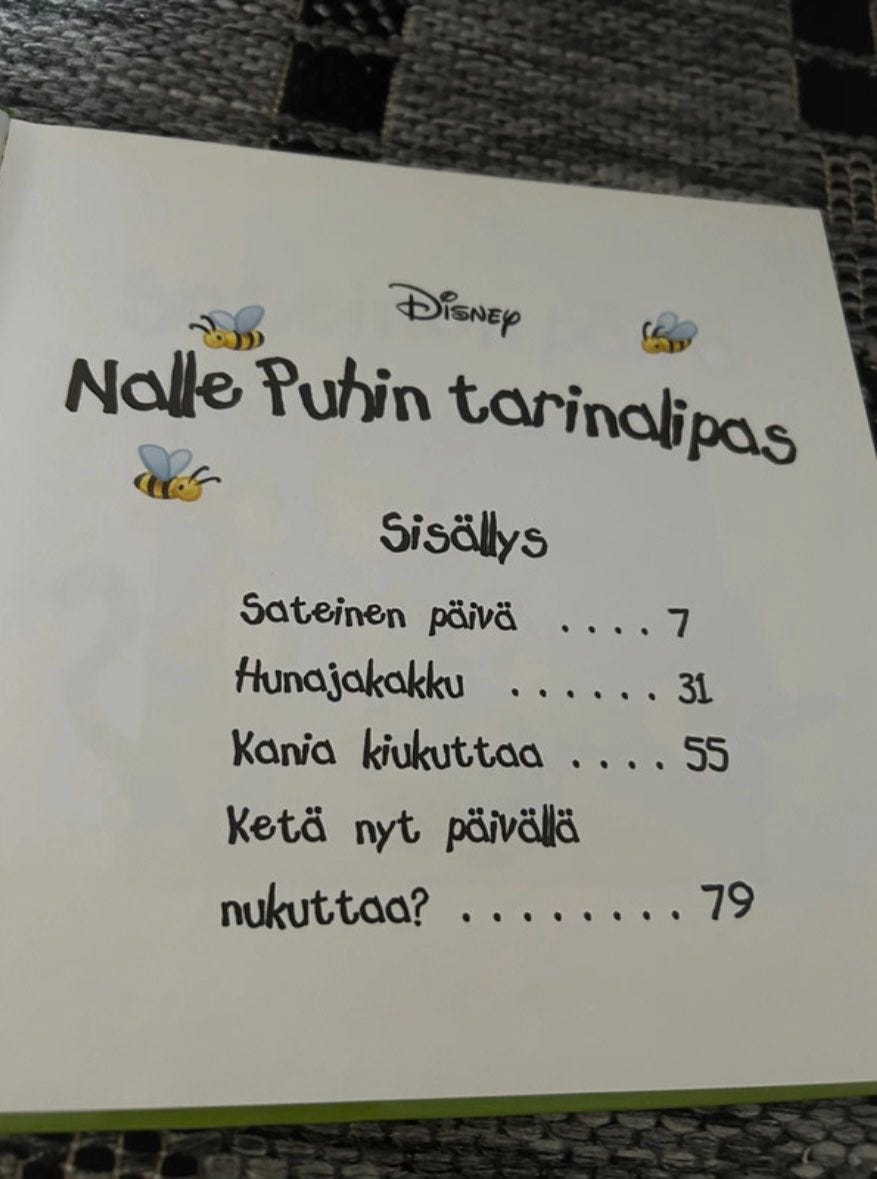 Disney
Nalle Puhin tarinalipas
Sisällys
Sateinen päivä .... 7
Hunajakakku ...... 31
Kania kiukuttaa .... 55
Ketä nyt päivällä
nukuttaa? ........ 79